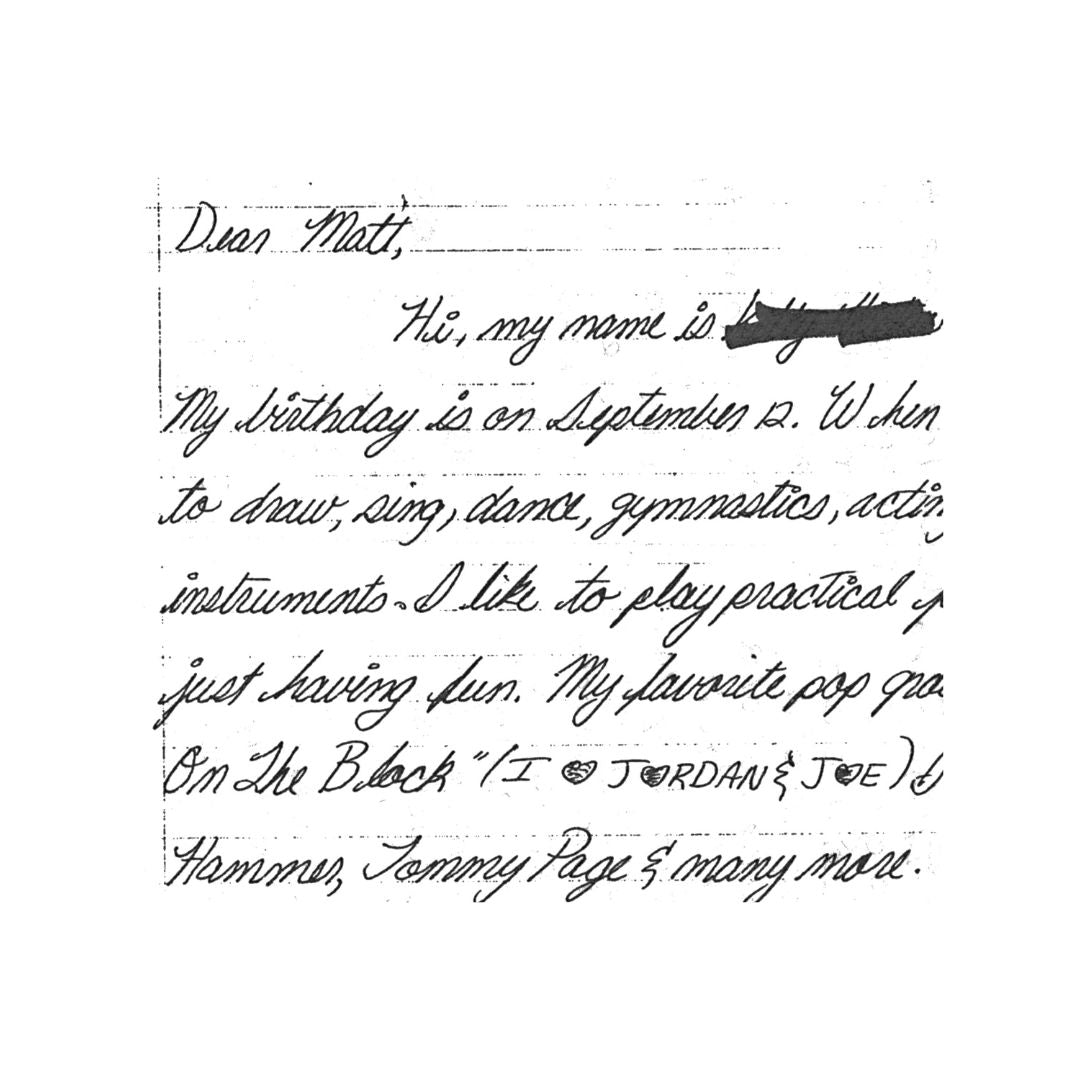 Dear Matt,
Hi, my name is
My birthday is on September 12. When
to draw, sing, dance, gymnastics, actin
instruments. I like to play practical
just having fun. My favorite pop gro
On The Block" (I ♥ JORDAN & JOE)
Hammer, Tommy Page & many more.